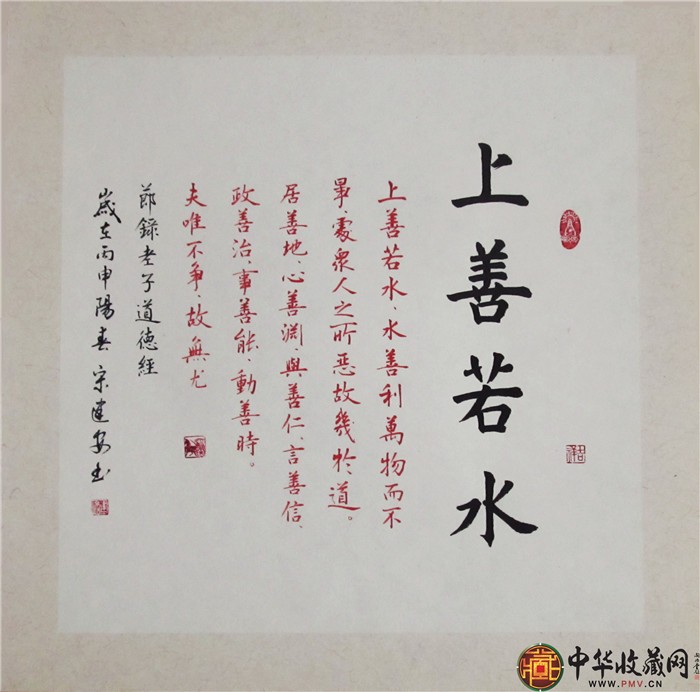 上善若水
上善若水、水善利萬物而不
爭、處衆人之所惡故幾於道。
居善地、心善淵、與善仁、言善信、
政善治、事善能、動善時。
夫唯不争、故無尤
節録老子道德經
歲在丙申陽春 宋建安书
中华收藏网
www.PMV.cn